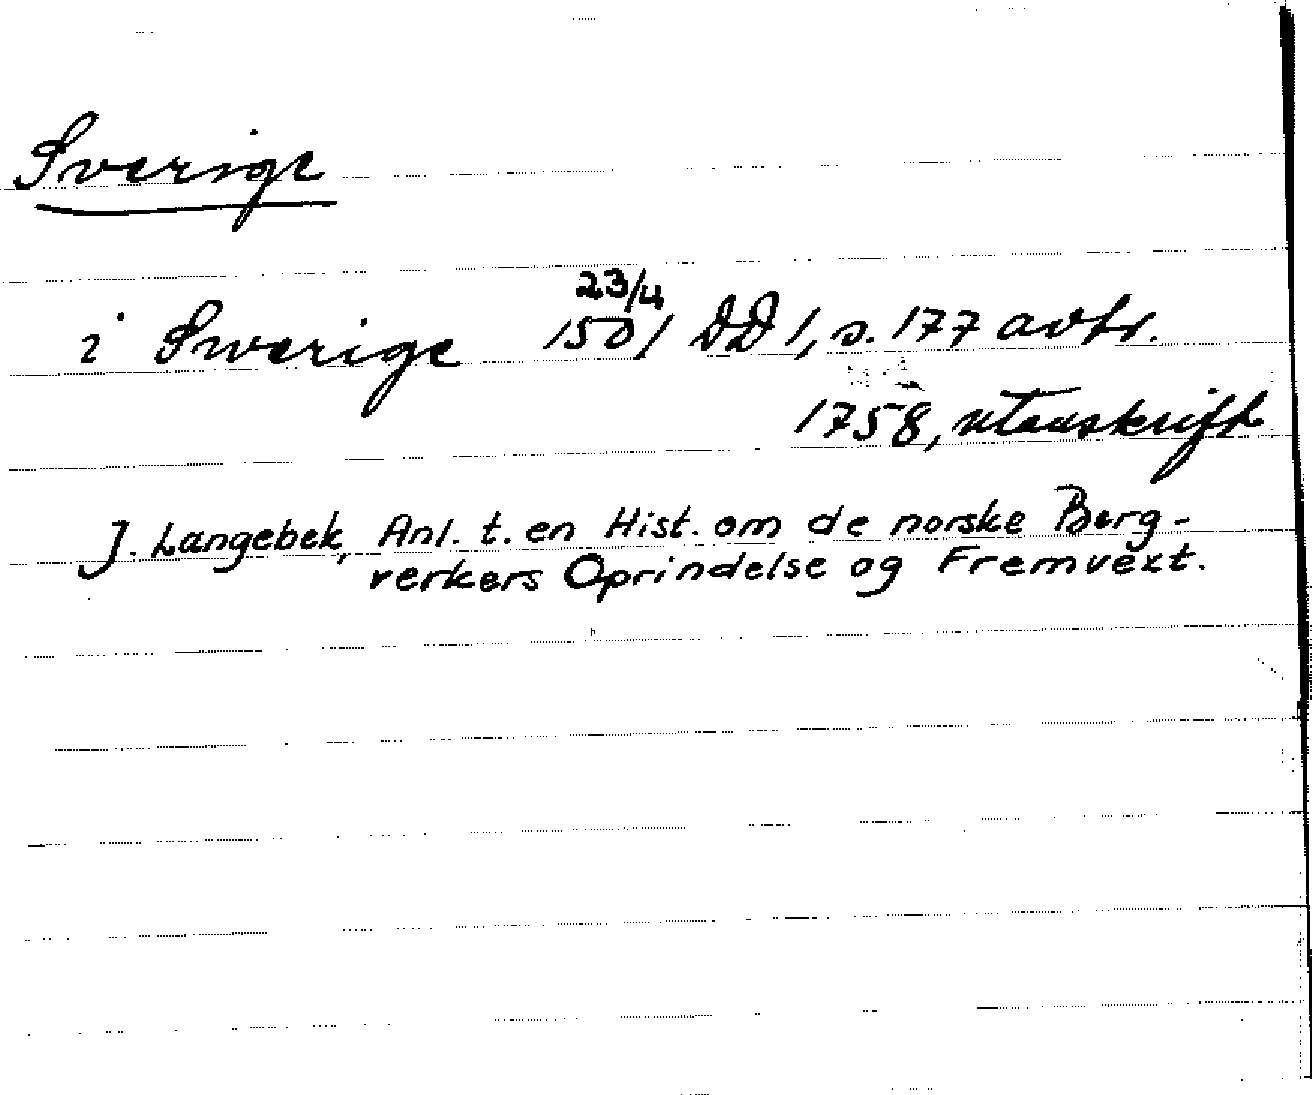 Sverige
i Swerige 23/4 1501 DD 1, s. 177 avtr.
1758, utanskrift
J. Langebek, Anl. t. en Hist. om de norske Berg-
verkers Oprindelse og Fremvext.